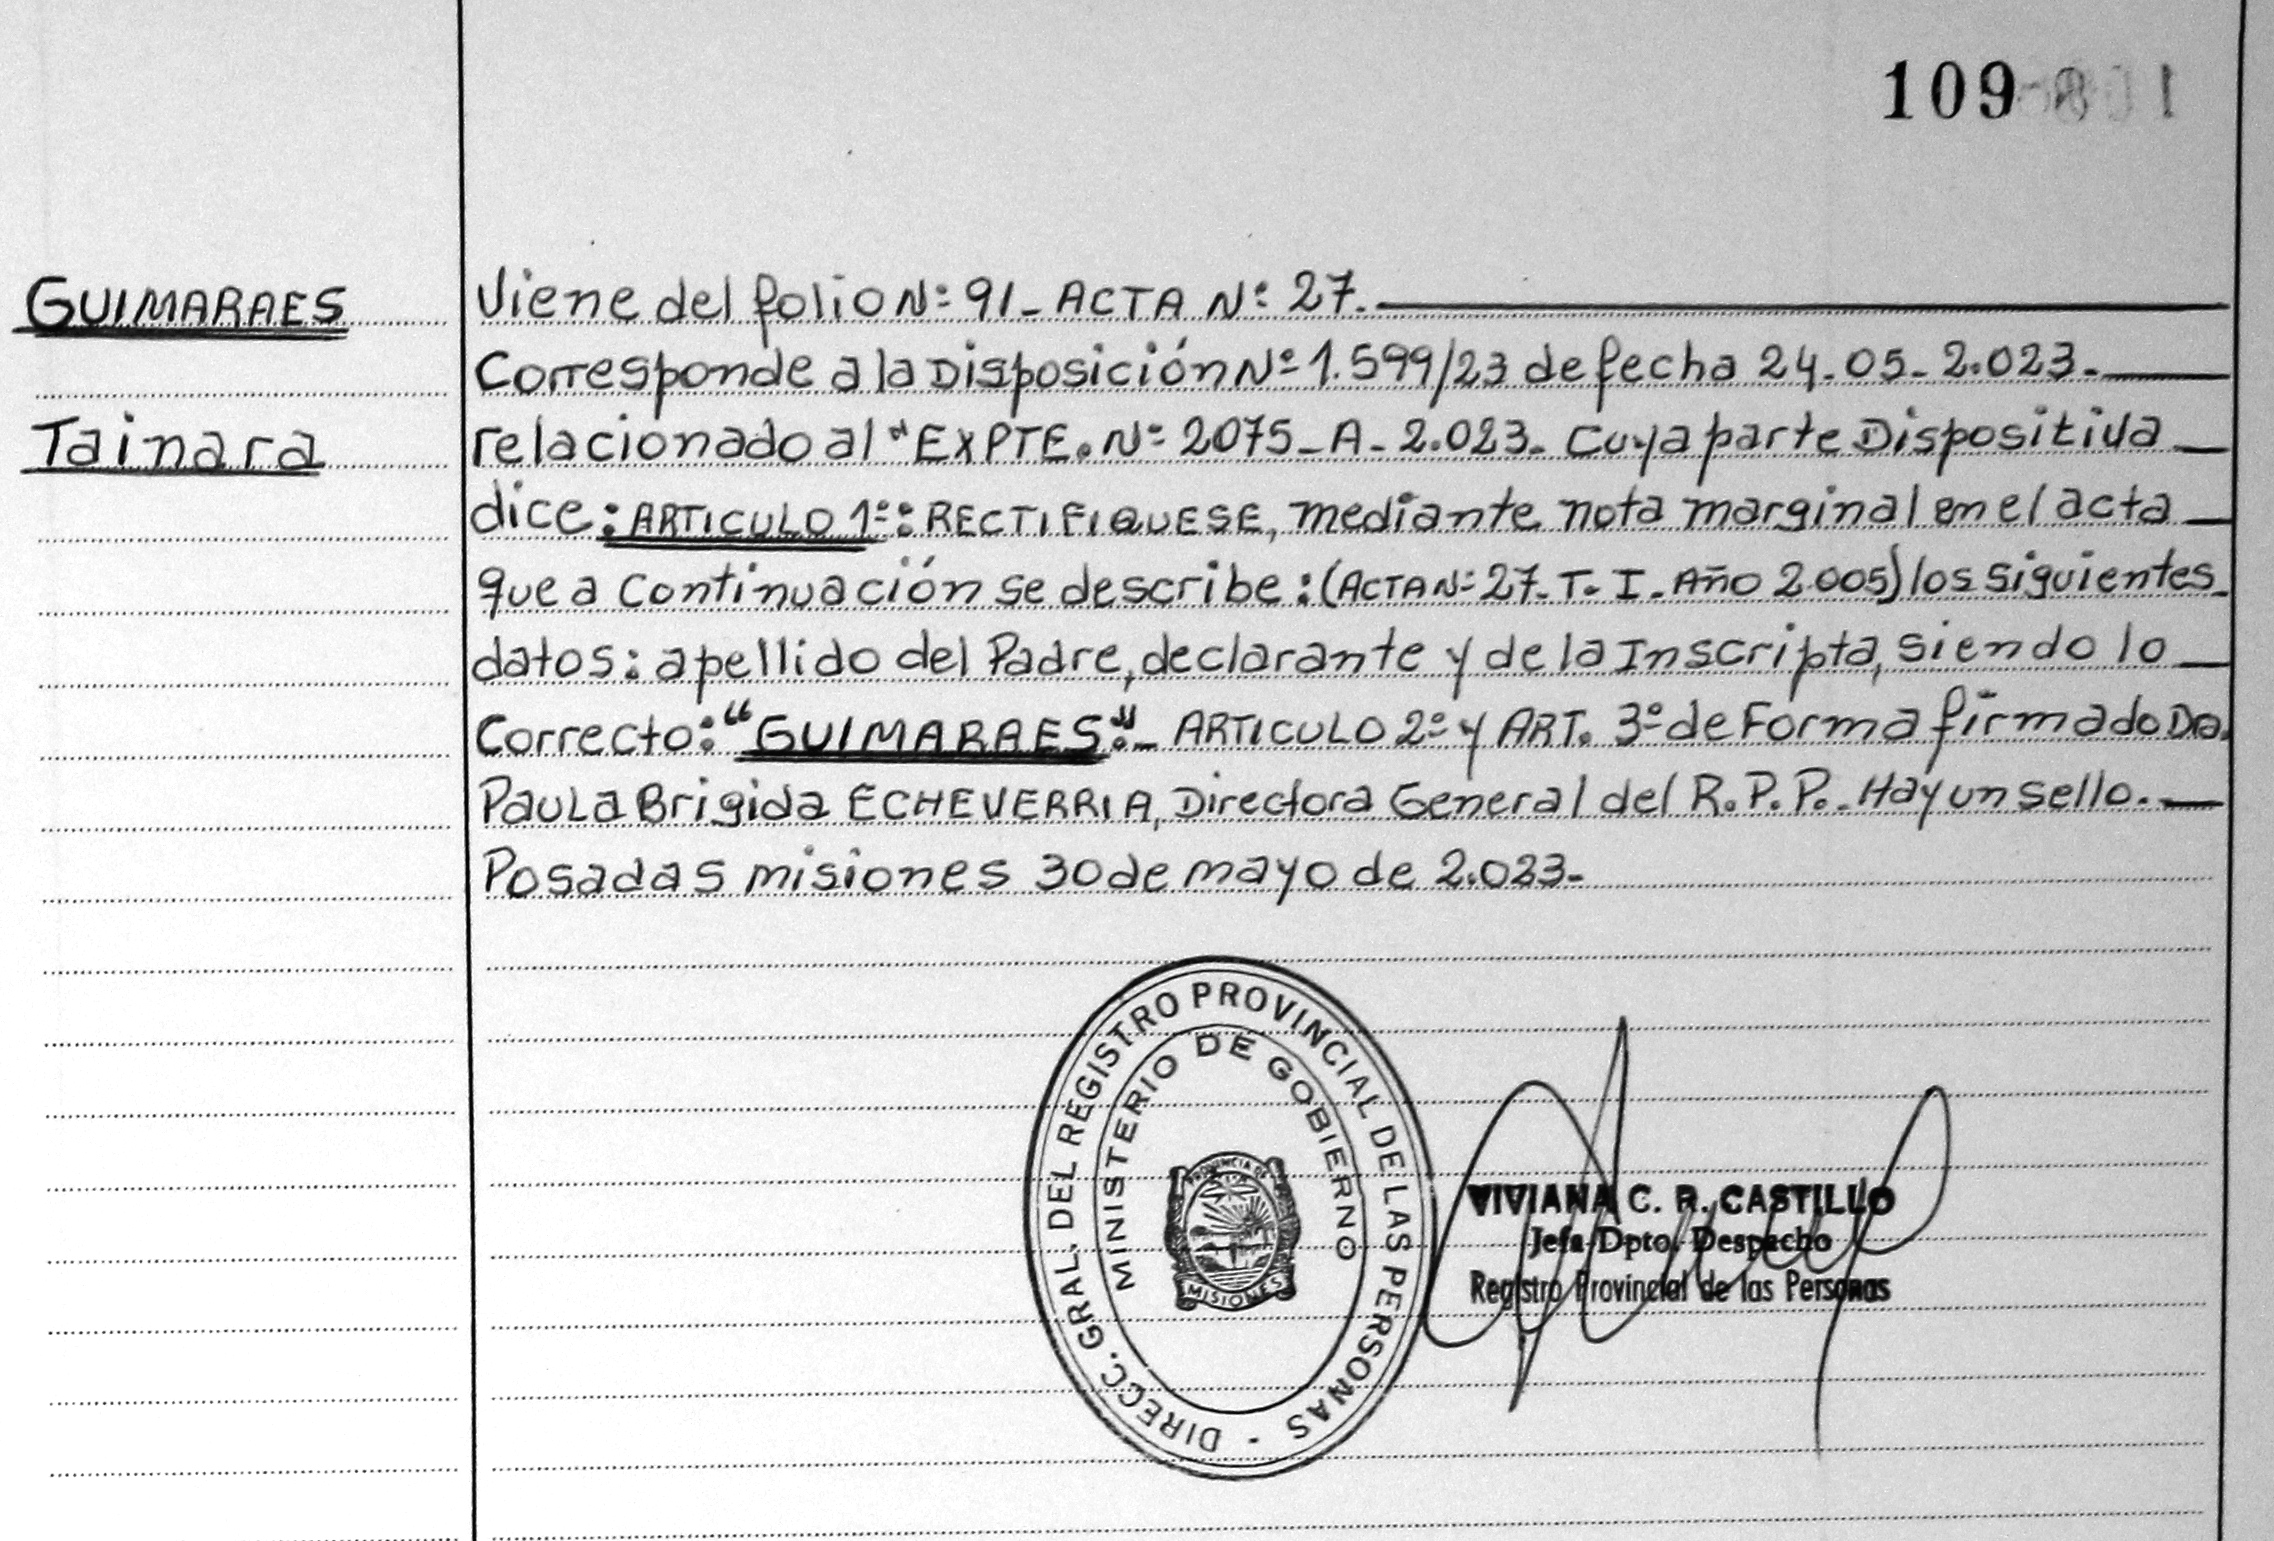 109
GUIMARAES
Tainara
Viene del folio Nº 91_ ACTA Nº 27.
Corresponde a la Disposición Nº 1.599/23 de fecha 24_05_2.023._
relacionado al "EXPTE. Nº 2075_A_2.023_ Cuya parte Dispositiva _
dice: ARTICULO 1º: RECTIFIQUESE, mediante nota marginal en el acta _
que a Continuación se describe: (ACTA Nº 27_T. I_Año 2.005) los siguientes_
datos: apellido del Padre, declarante y de la Inscripta, siendo lo _
Correcto: "GUIMARAES"._ ARTICULO 2º y ART. 3º de Forma firmado Dra.
Paula Brigida ECHEVERRIA, Directora General del R.P.P._ Hay un sello._
Posadas misiones 30 de mayo de 2.023_
DIRECC. GRAL. DEL REGISTRO PROVINCIAL DE LAS PERSONAS -
MINISTERIO DE GOBIERNO
PROVINCIA DE
MISIONES
VIVIANA C. R. CASTILLO
Jefa Dpto. Despacho
Registro Provincial de las Personas